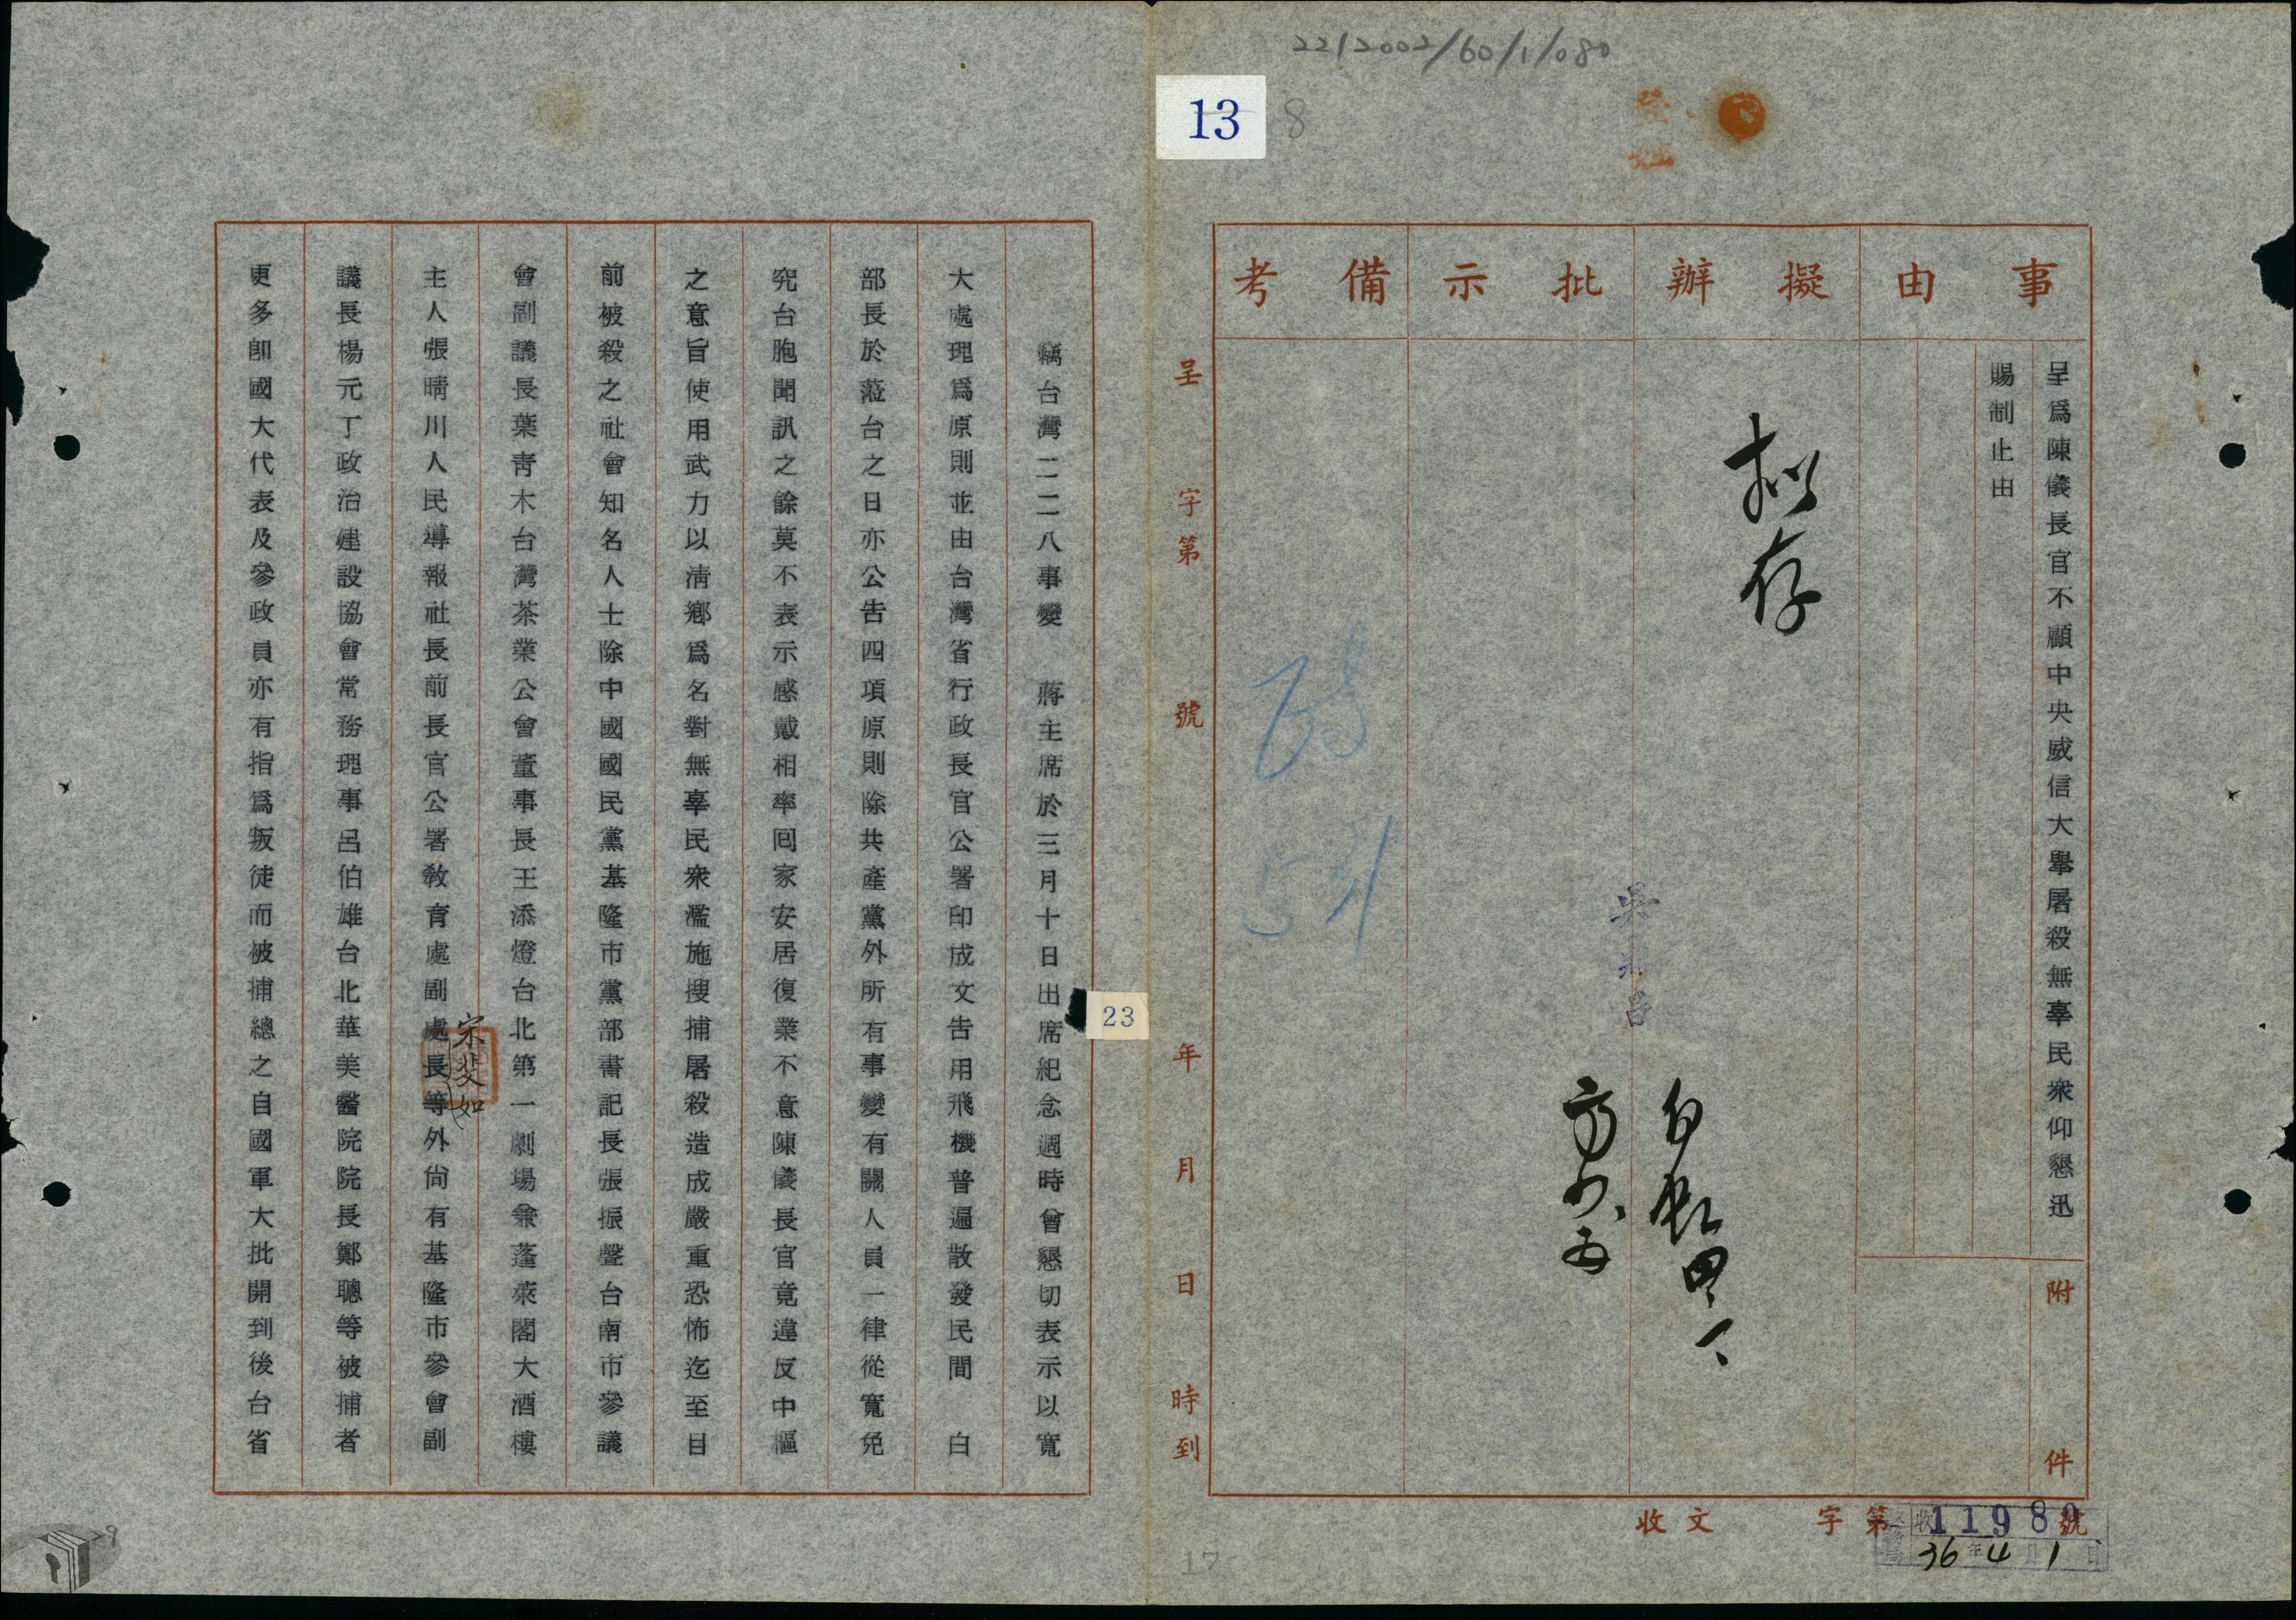 2212002/60/1/080
13
8
事由
擬辦
批示
備考
呈爲陳儀長官不顧中央威信大舉屠殺無辜民衆仰懇迅
賜制止由
附件
擬存
呈 字第 號 年 月 日 時到
收文 字第 號
11980
36年4月1日
23
竊台灣二二八事變 蔣主席於三月十日出席紀念週時曾懇切表示以寬
大處理爲原則並由台灣省行政長官公署印成文告用飛機普遍散發民間 白
部長於蒞台之日亦公告四項原則除共產黨外所有事變有關人員一律從寬免
究台胞聞訊之餘莫不表示感戴相率回家安居復業不意陳儀長官竟違反中樞
之意旨使用武力以淸鄉爲名對無辜民衆濫施搜捕屠殺造成嚴重恐怖迄至目
前被殺之社會知名人士除中國國民黨基隆市黨部書記長張振聲台南市參議
會副議長葉靑木台灣茶業公會董事長王添燈台北第一劇場兼蓬萊閣大酒樓
主人張晴川人民導報社長前長官公署敎育處副處長等外尙有基隆市參會副
宋斐如
議長楊元丁政治建設協會常務理事呂伯雄台北華美醫院院長鄭聰等被捕者
更多卽國大代表及參政員亦有指爲叛徒而被捕總之自國軍大批開到後台省
17